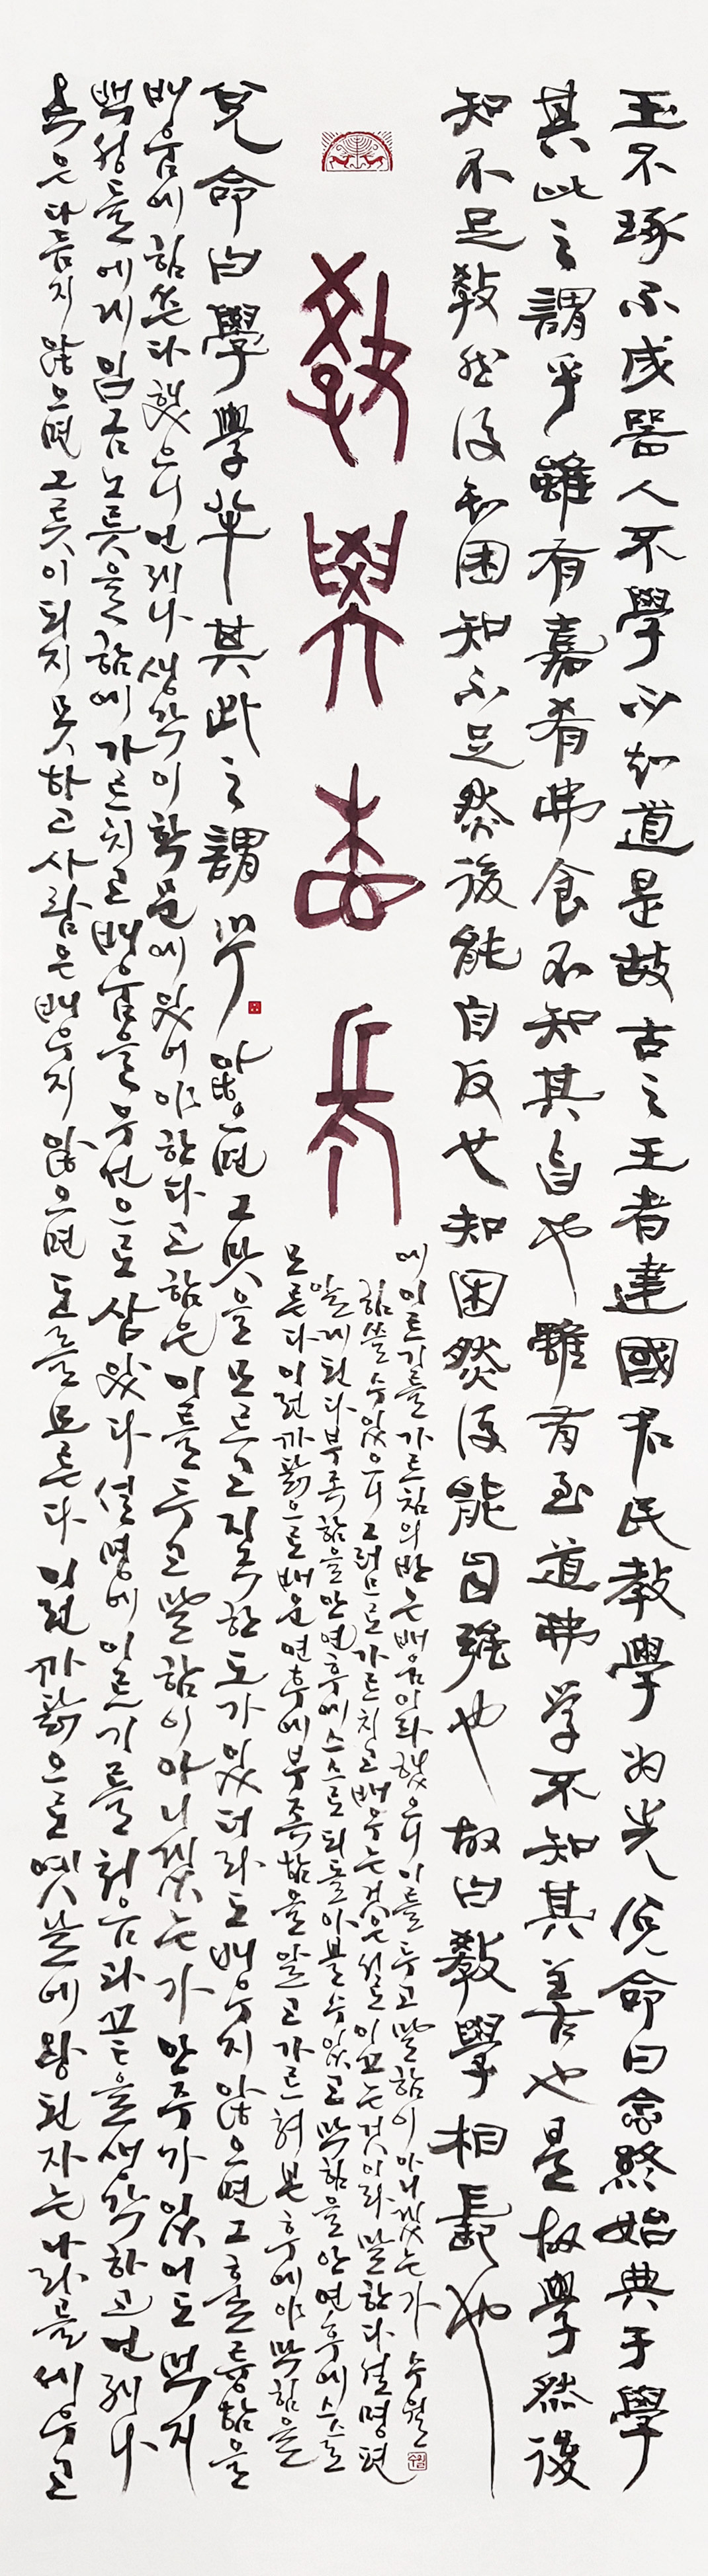 玉不琢不成器人不學不知道是故古之王者建國君民教學為先兌命曰念終始典于學
其此之謂乎雖有嘉肴弗食不知其旨也雖有至道弗學不知其善也是故學然後
知不足敎然後知困知不足然後能自反也知困然後能自强也故曰敎學相長也
敎學相長
兌命曰學學半其此之謂乎
옥은 다듬지 않으면 그릇이 되지 못하고 사람은 배우지 않으면 도를 모른다 이런 까닭으로 옛날에 왕된 자는 나라를 세우고
백성들에게 임금노릇을 함에 가르치고 배움을 우선으로 삼았다 열명에 이르기를 처음과 끝을 생각하고 언제나
배움에 힘쓴다 했으니 언제나 생각이 학문에 있어야 한다고 함은 이를 두고 말함이 아니겠는가 안주가 있어도 먹지
않으면 그 맛을 모르고 지극한 도가 있더라도 배우지 않으면 그 훌륭함을
모른다 이런 까닭으로 배운 연후에 부족함을 알고 가르쳐 본 후에야 막힘을
알게 된다 부족함을 안 연후에 스스로 되돌아볼 수 있고 막힘을 안 연후에 스스로
힘쓸 수 있으니 그러므로 가르치고 배우는 것은 서로 이끄는 것이라 말한다 열명편
에 이르기를 가르침의 반은 배움이라 했으니 이를 두고 말함이 아니겠는가 수월